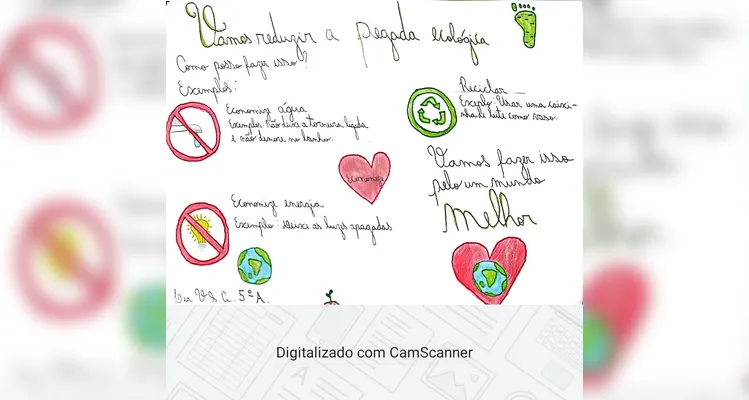 Vamos reduzir a pegada ecológica
Como posso fazer isso?
Exemplos:
Economize água
Exemplo: Não deixe a torneira ligada
e não demore no banho.
economize
Economize energia
Exemplo: Deixe as luzes apagadas
Reciclar
Exemplo: Usar uma caixi-
nha de leite como vaso.
Vamos fazer isso
pelo um mundo
melhor
V.S.C. 5º A.
Digitalizado com CamScanner